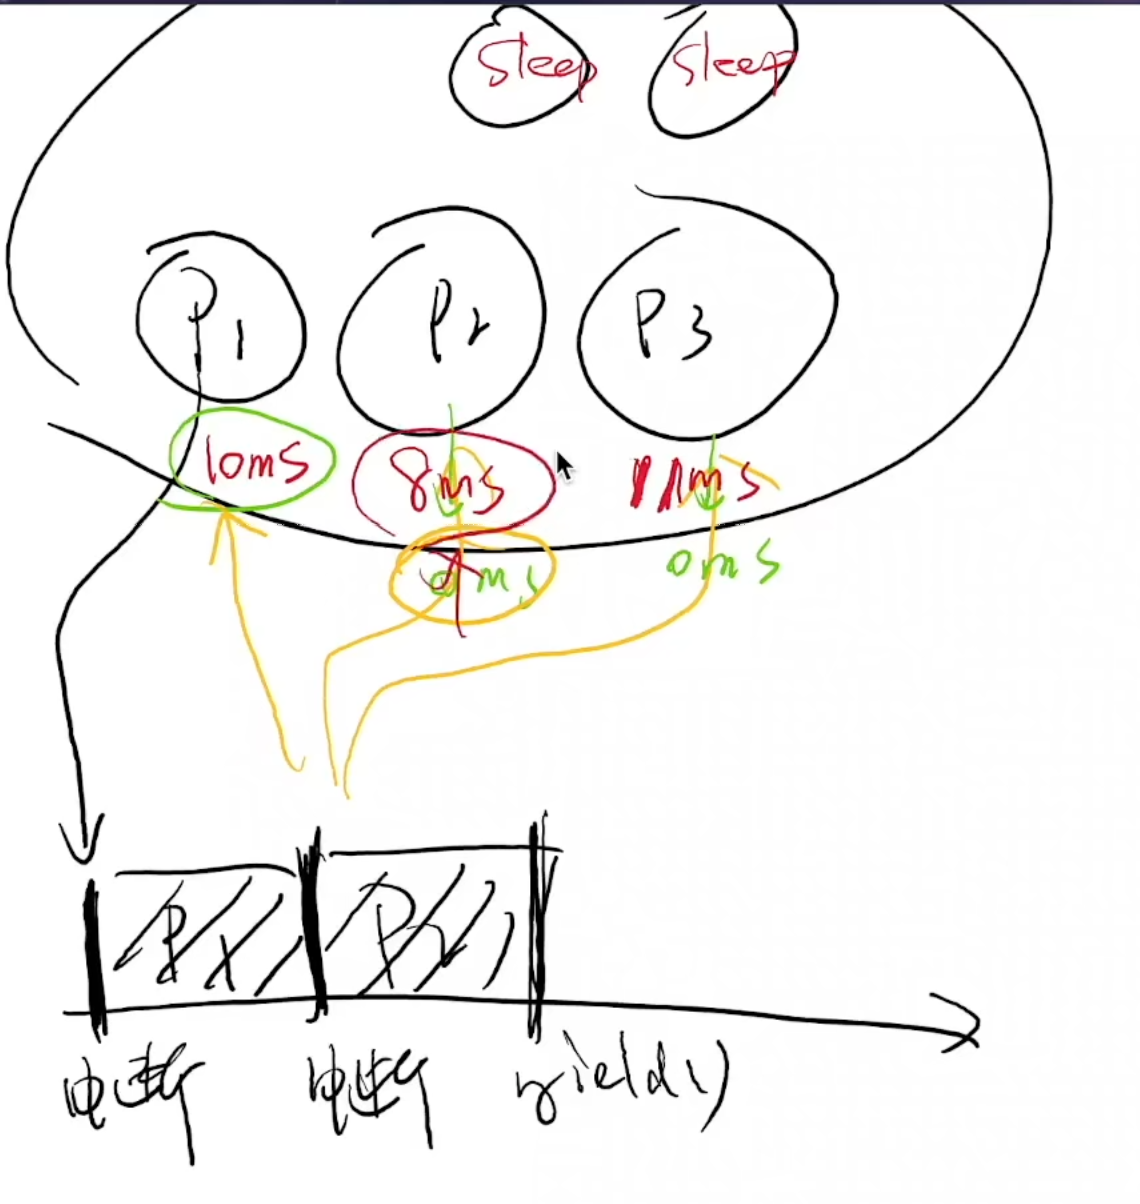 Sleep Sleep
P1 P2 P3
10ms 8ms 11ms
0ms 0ms
P1 P2
中断 中断 yield()